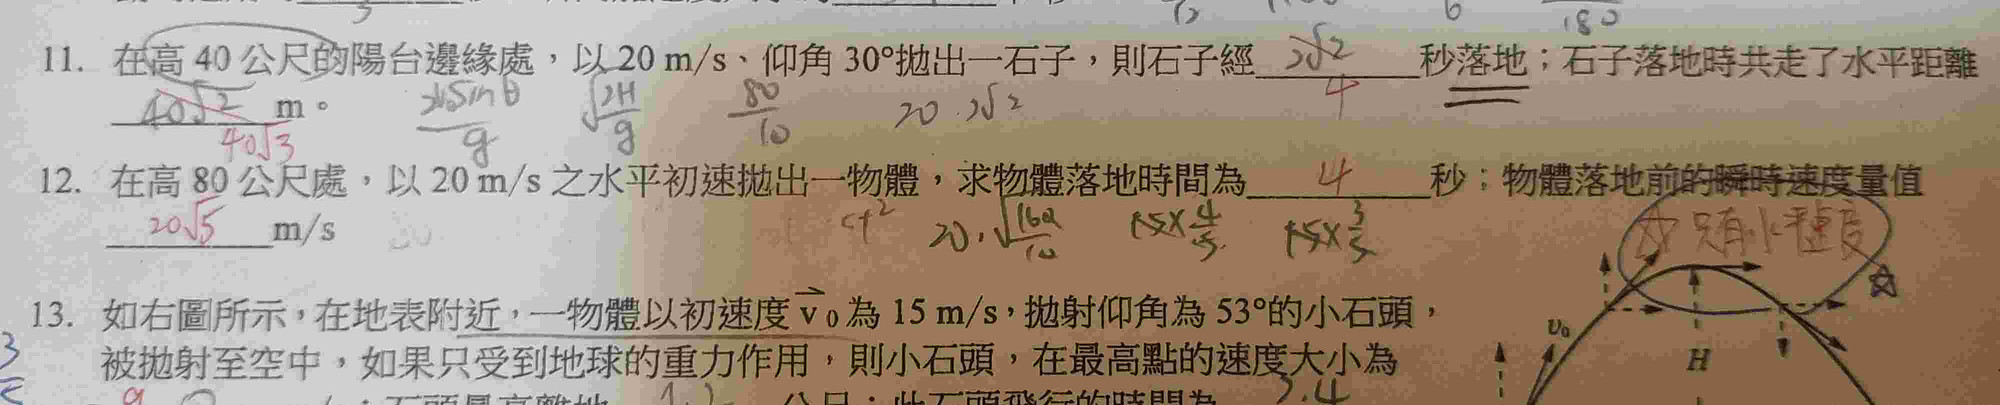 11. 在高 40 公尺的陽台邊緣處，以 20 m/s、仰角 30°拋出一石子，則石子經 2√2 秒落地；石子落地時共走了水平距離
4
40√2 m。
40√3
2v₀sinθ/g √(2H/g) 80/10 20 · 2√2
12. 在高 80 公尺處，以 20 m/s 之水平初速拋出一物體，求物體落地時間為 4 秒；物體落地前的瞬時速度量值
20√5 m/s
20 · √(160/10) 15×4/5 15×3/5
13. 如右圖所示，在地表附近，一物體以初速度 v⃗₀ 為 15 m/s，拋射仰角為 53°的小石頭，
被拋射至空中，如果只受到地球的重力作用，則小石頭，在最高點的速度大小為
v₀
H
9
1.2
2.4
公尺；此石頭飛行的時間為